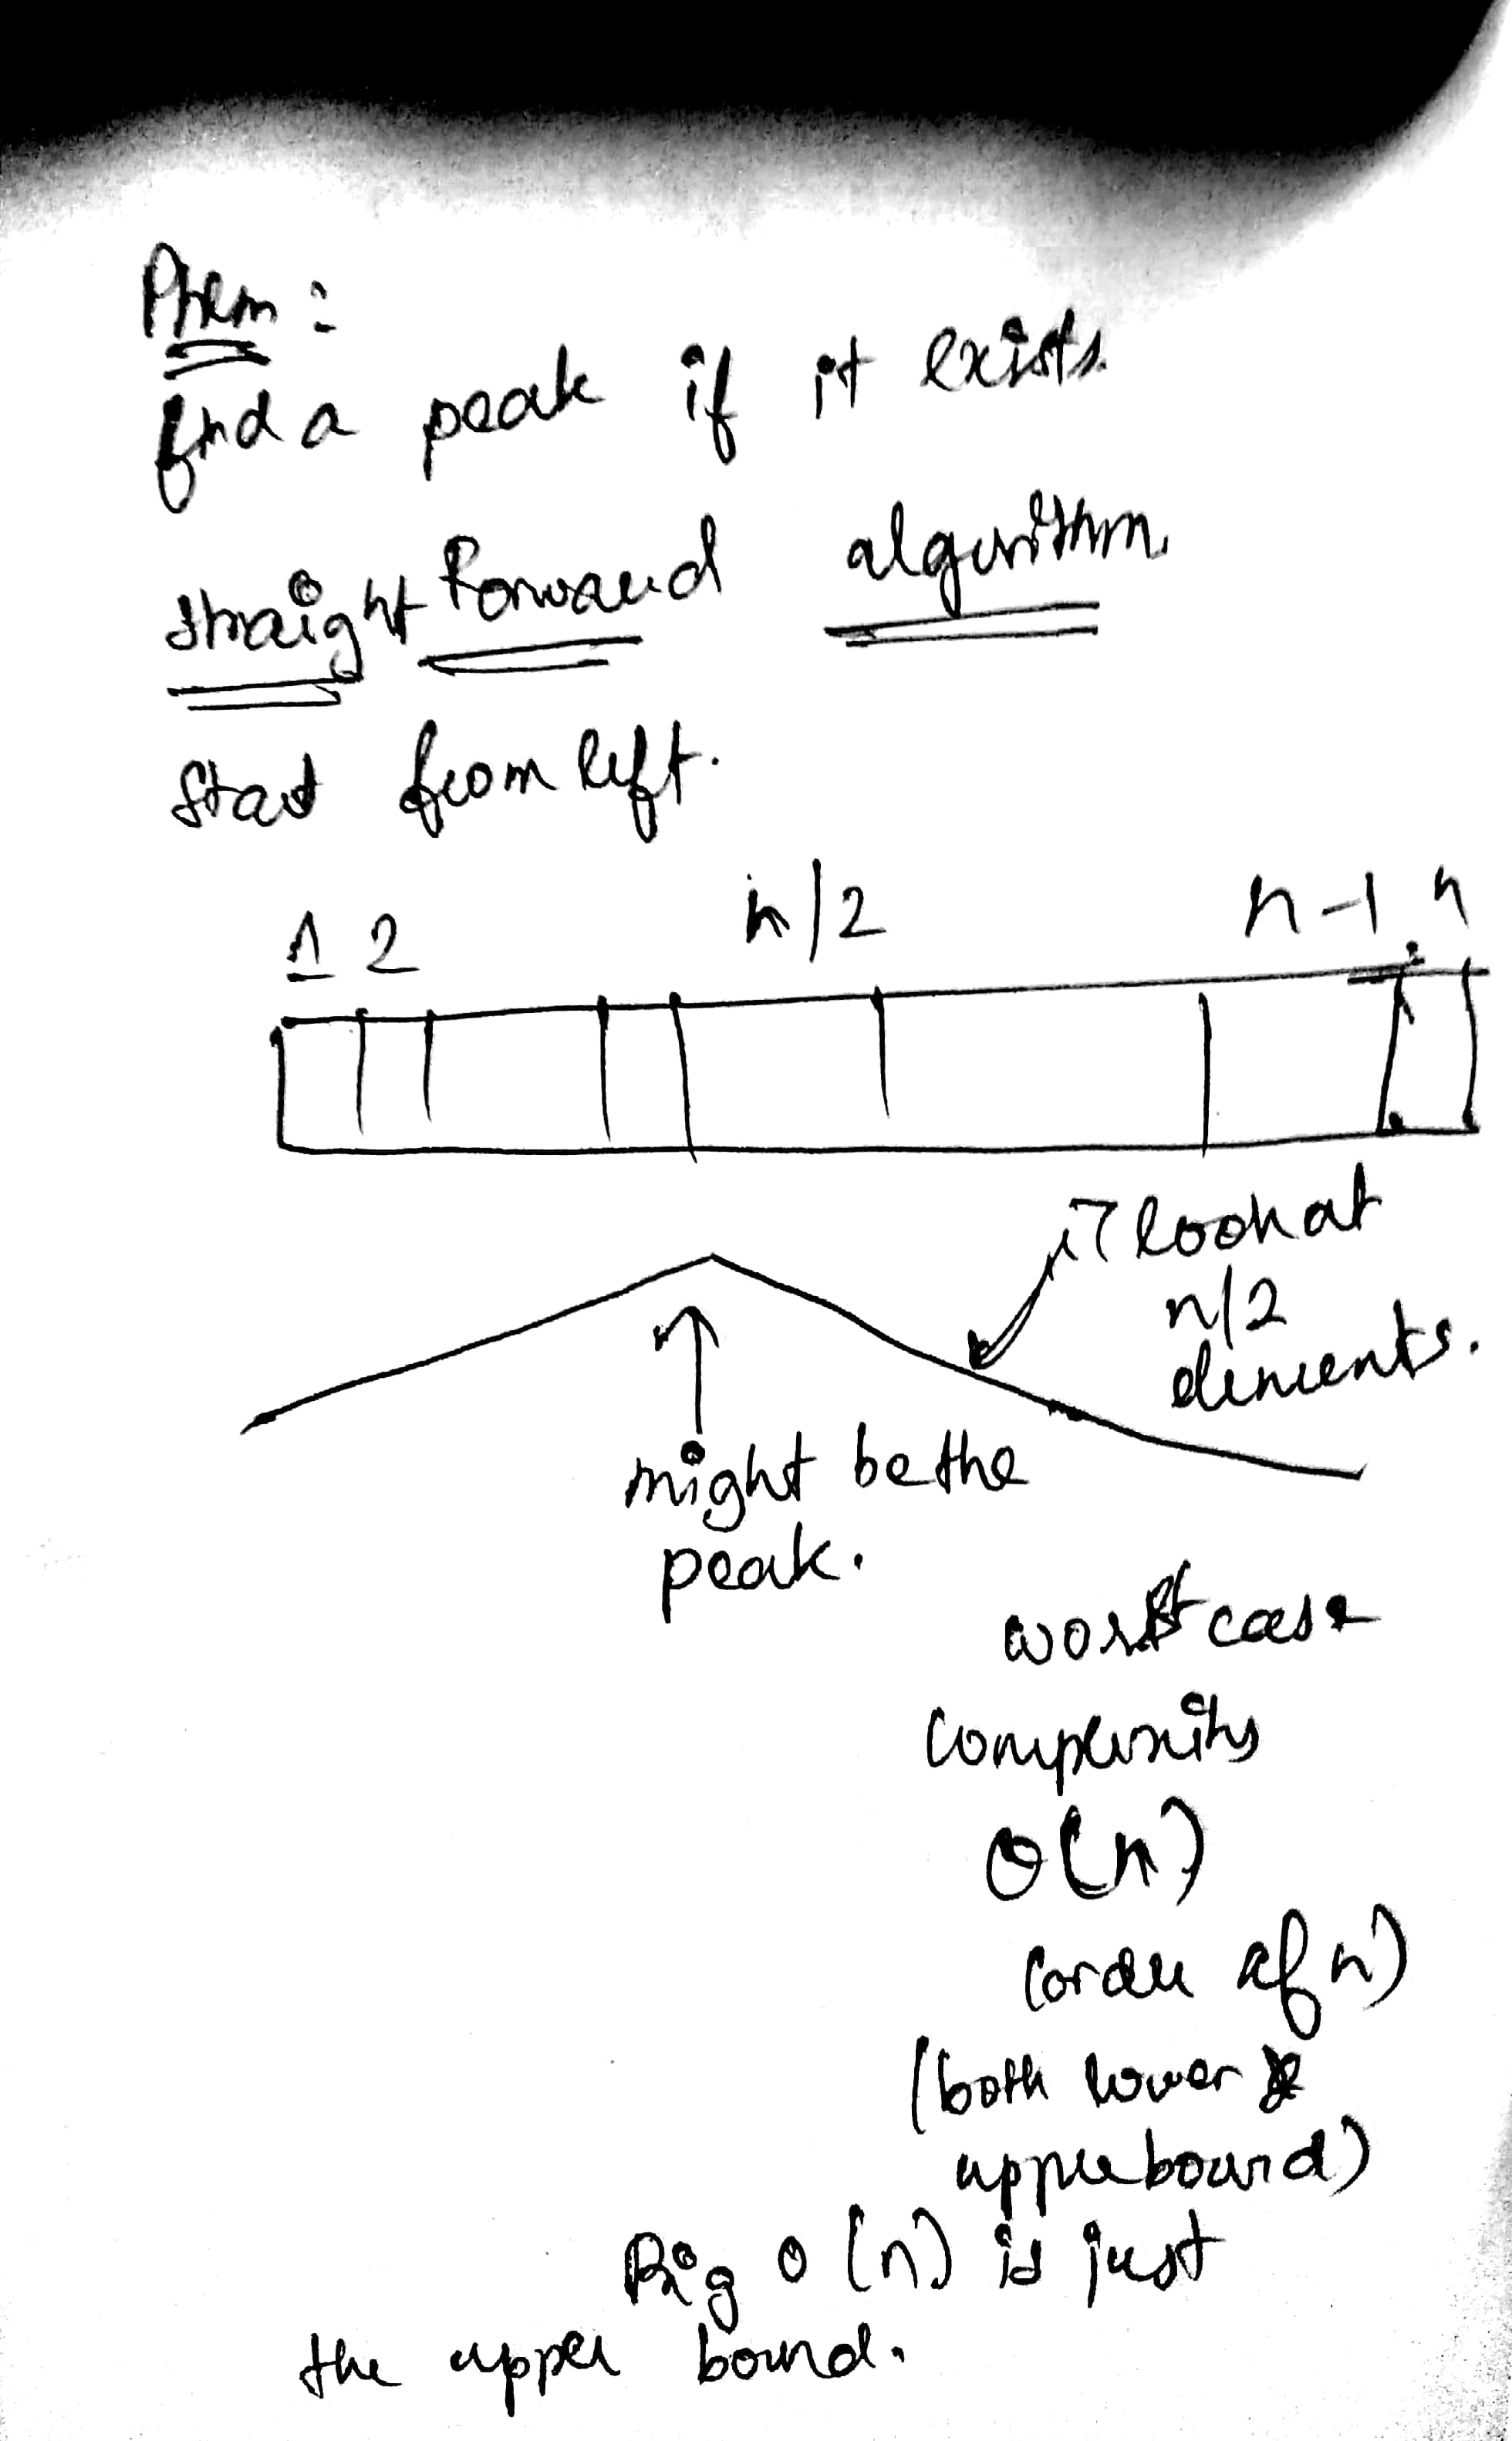 Prblm :
find a peak if it exists.
straight forward algorithm
Start from left.
1 2 n/2 n-1 n
look at
n/2
elements.
might be the
peak.
worst case
complexity
Θ(n)
(order of n)
(both lower &
upper bound)
Big O (n) is just
the upper bound.